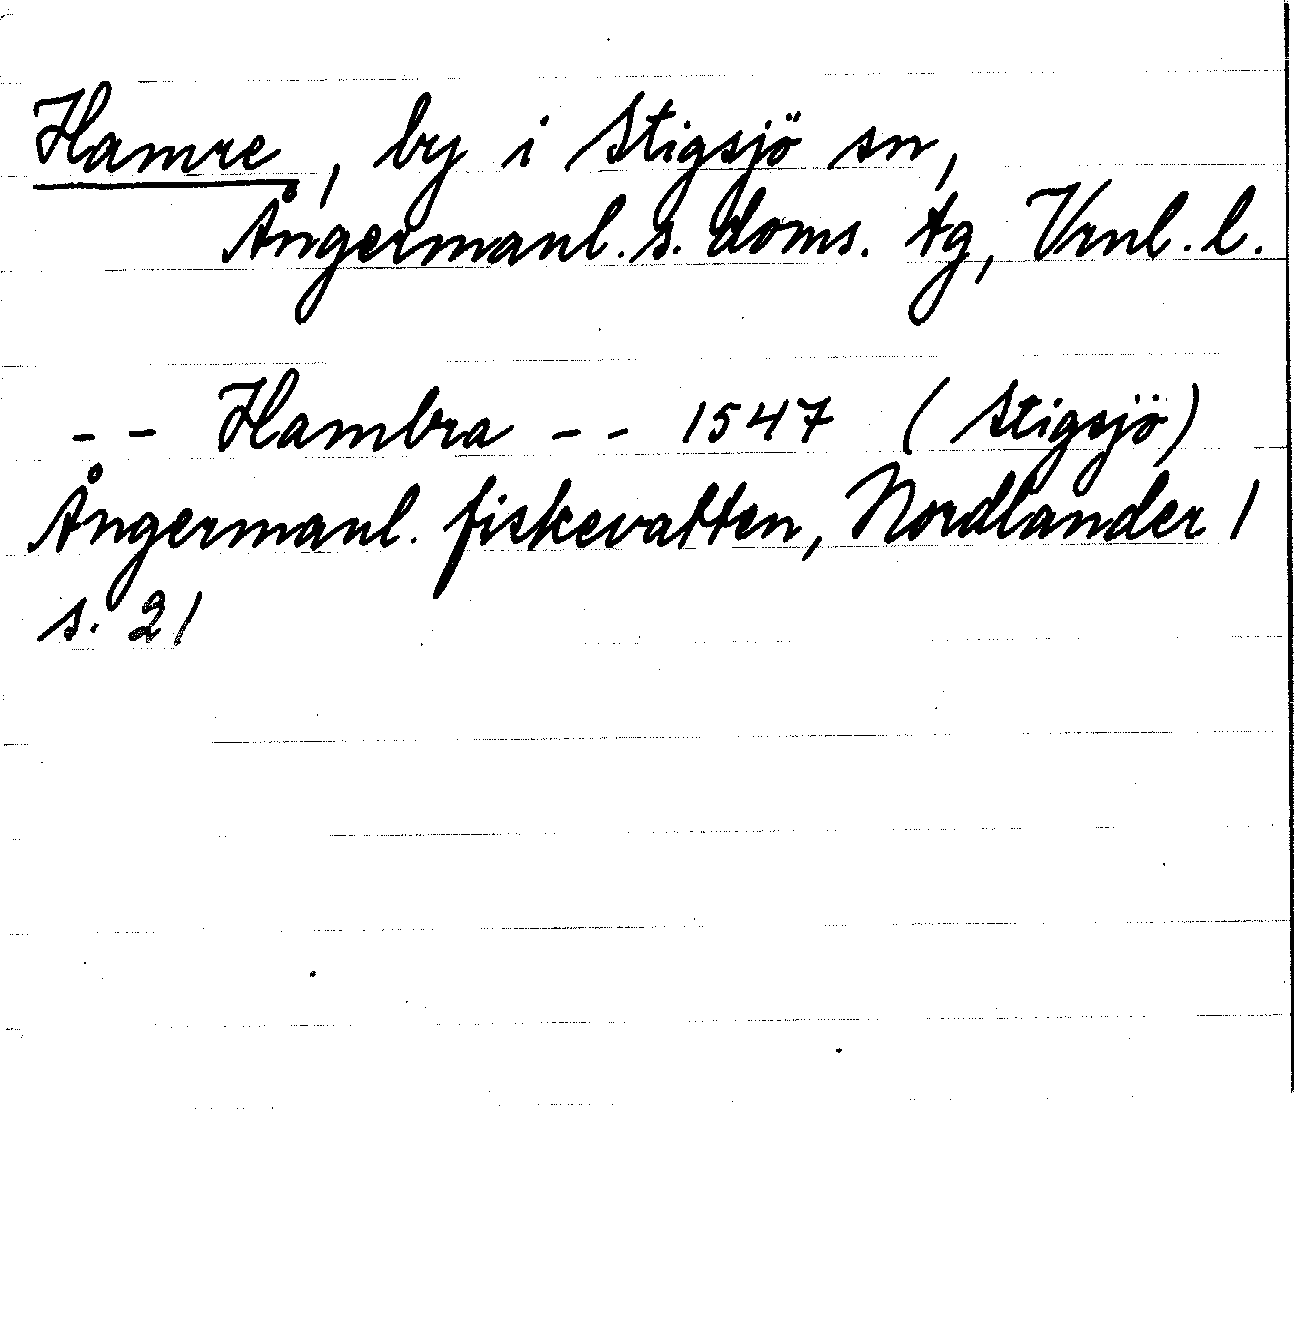 Hamre, by i Stigsjö sn,
Ångermanl. s. doms. tg, Vrnl. l.
-- Hambra -- 1547 (Stigsjö)
Ångermanl. fiskevatten, Nordlander 1
s. 21